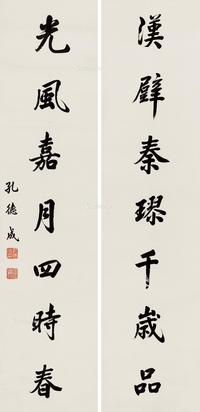 漢璧秦璆千歲品
光風嘉月四時春
孔德成